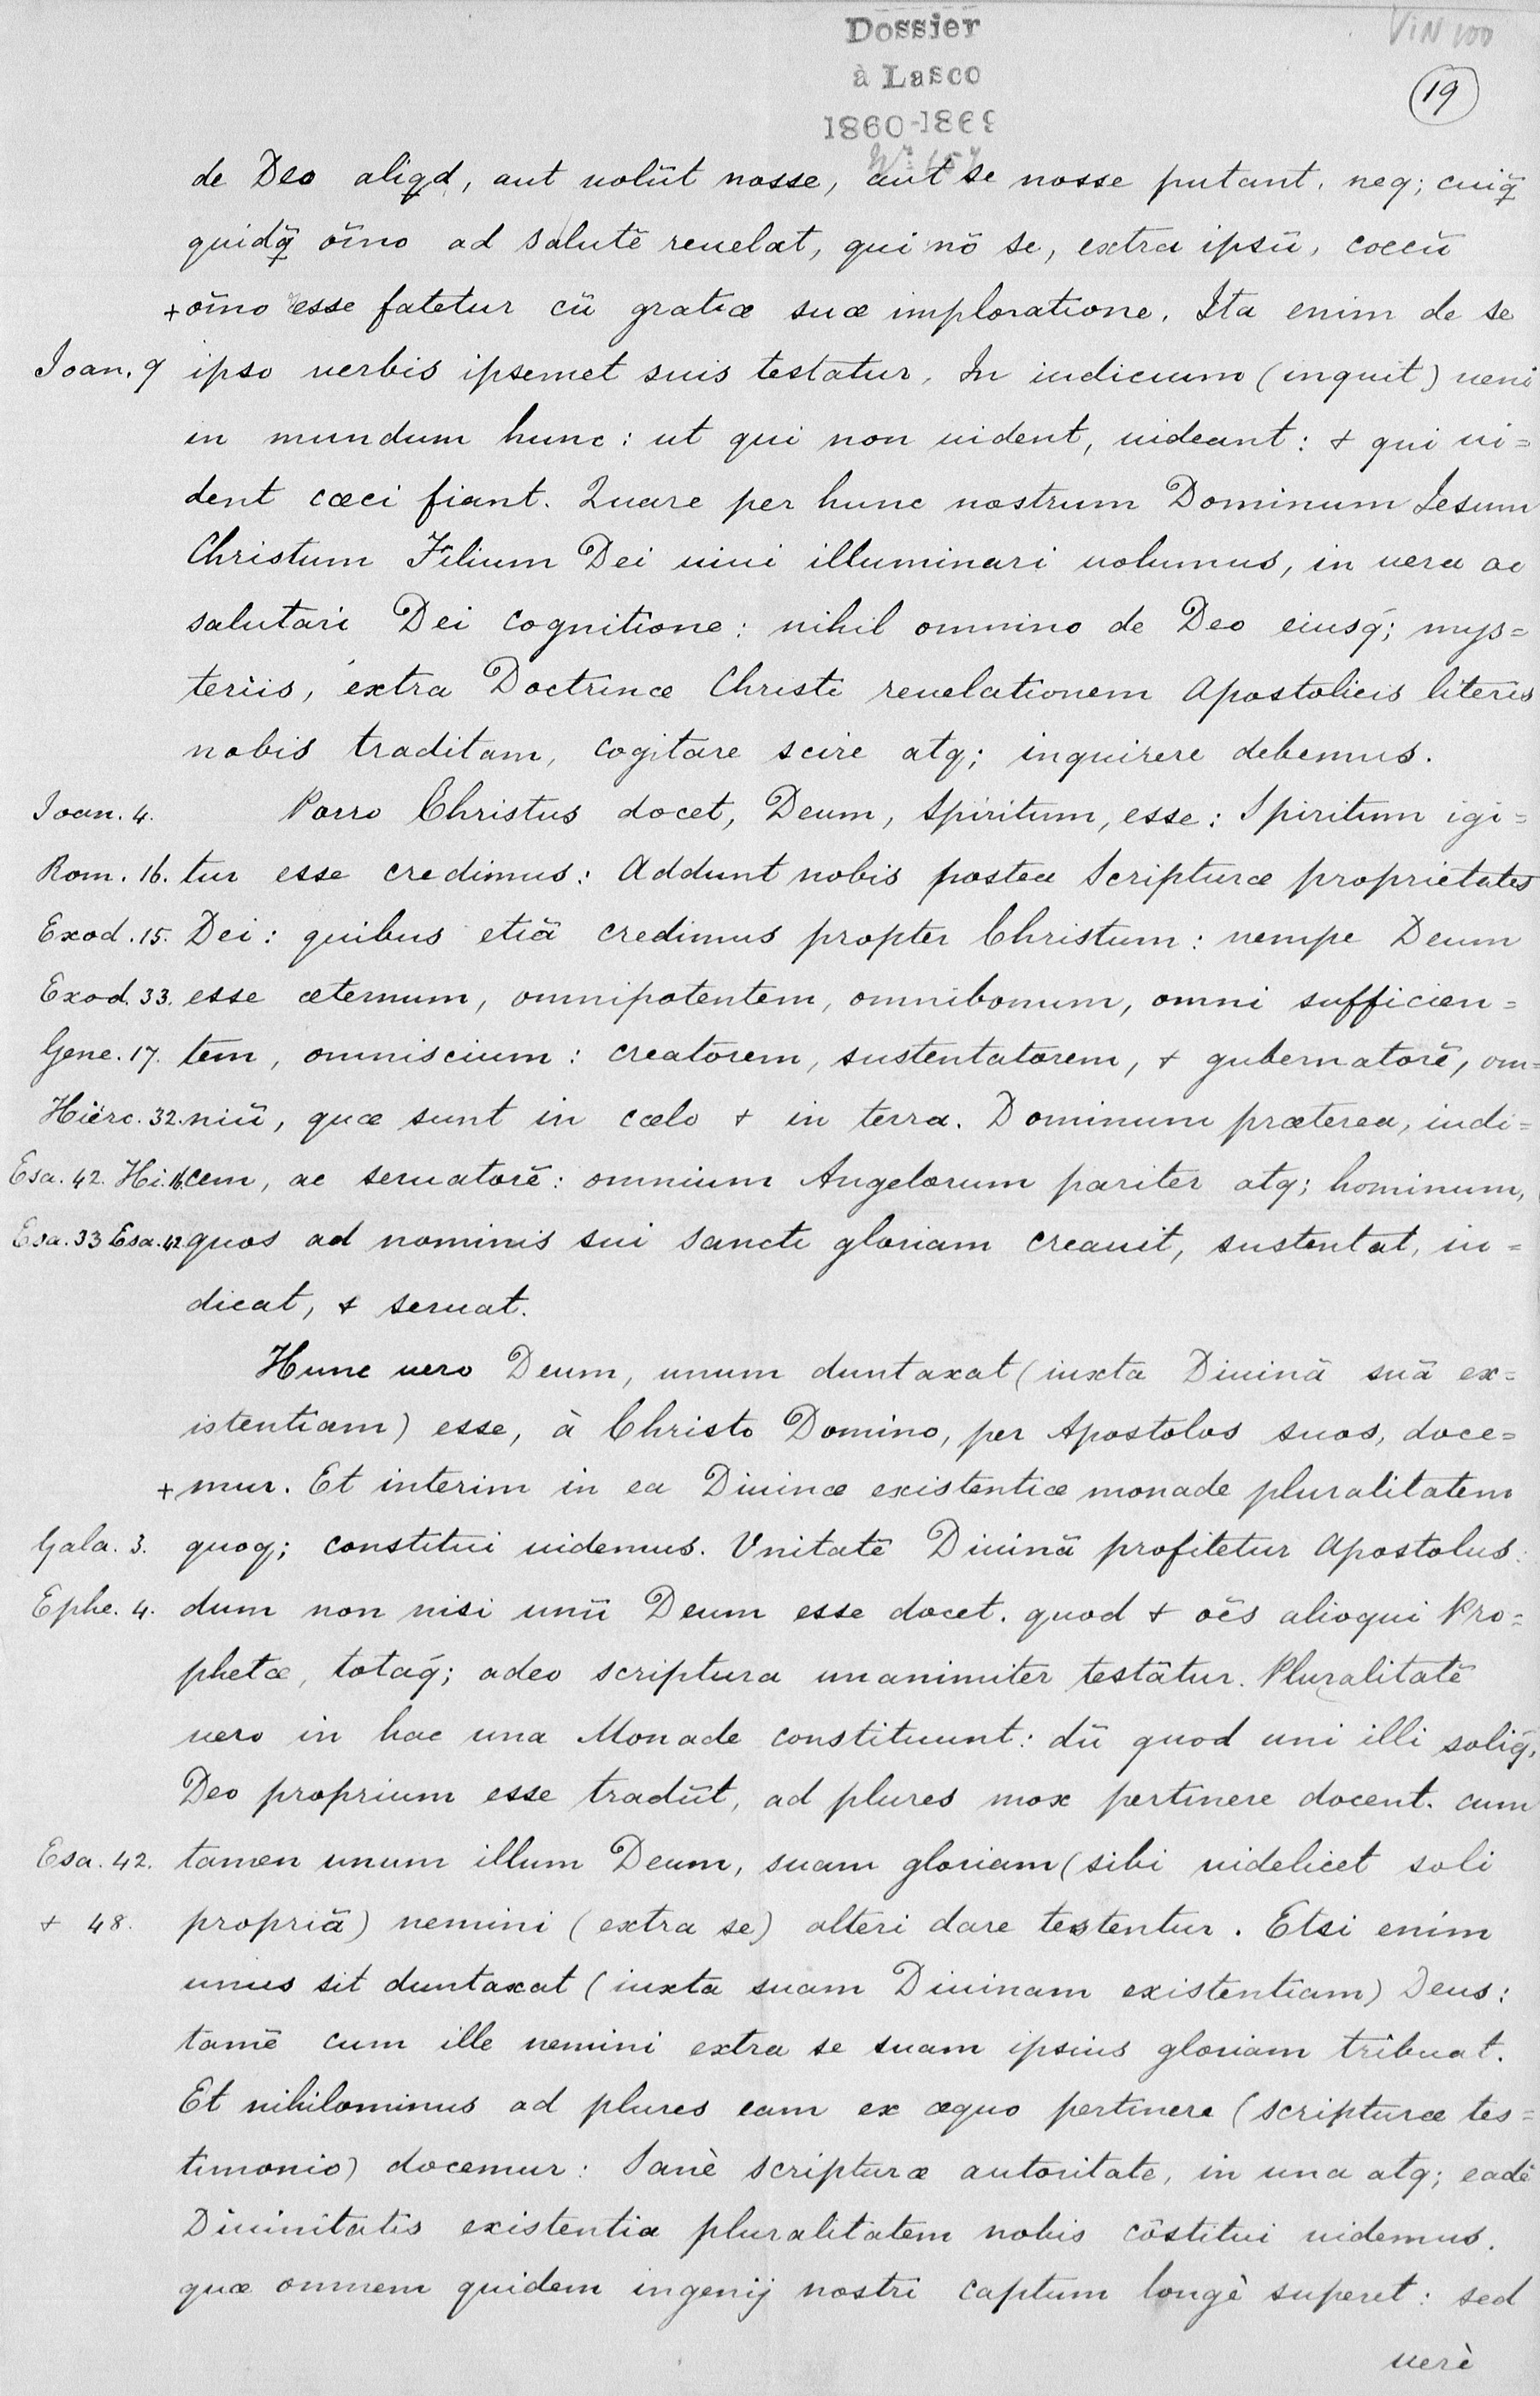 Dossier
à Lasco
1860-1869
VIN 100
19
de Deo aliqd, aut uolūt nosse, aut se nosse putant. neq; cuiq̃
quidq̃ oīno ad salutē reuelat, qui nō se, extra ipsū, coecū
+ oīno esse fatetur cū gratiæ suæ imploratione. Ita enim de se
Ioan. 9 ipso uerbis ipsemet suis testatur. In iudicium (inquit) ueni
in mundum hunc: ut qui non uident, uideant: & qui ui=
dent cæci fiant. Quare per hunc nostrum Dominum Iesum
Christum Filium Dei uiui illuminari uolumus, in uera ac
salutari Dei cognitione: nihil omnino de Deo eiusq́; mys=
teriis, extra Doctrinæ Christi reuelationem Apostolicis literis
nobis traditam, cogitare scire atq; inquirere debemus.
Ioan. 4. Porro Christus docet, Deum, Spiritum, esse: Spiritum igi=
Rom. 16. tur esse credimus: Addunt nobis postea Scripturæ proprietates
Exod. 15. Dei: quibus etiā credimus propter Christum: nempe Deum
Exod. 33. esse æternum, omnipotentem, omnibonum, omni sufficien=
Gene. 17. tem, omniscium: creatorem, sustentatorem, & gubernatorē, om=
Hiero. 32. niū, quæ sunt in cœlo & in terra. Dominum præterea, iudi=
Esa. 42. Hi. 16. cem, ac seruatorē: omnium Angelorum pariter atq; hominum,
Esa. 33 Esa. 42. quos ad nominis sui sancti gloriam creauit, sustentat, iu=
dicat, & seruat.
Hunc uero Deum, unum duntaxat (iuxta Diuinā suā ex=
istentiam) esse, à Christo Domino, per Apostolos suos, doce=
+ mur. Et interim in ea Diuinæ existentiæ monade pluralitatem
Gala. 3. quoq; constitui uidemus. Vnitatē Diuinā profitetur Apostolus:
Ephe. 4. dum non nisi unū Deum esse docet. quod & oēs alioqui Pro=
phetæ, totaq́; adeo scriptura unanimiter testātur. Pluralitatē
uero in hac una Monade constituunt: dū quod uni illi soliq́,
Deo proprium esse tradūt, ad plures mox pertinere docent. cum
Esa. 42. tamen unum illum Deum, suam gloriam (sibi uidelicet soli
& 48. propriā) nemini (extra se) alteri dare testentur. Etsi enim
unus sit duntaxat (iuxta suam Diuinam existentiam) Deus:
tamē cum ille nemini extra se suam ipsius gloriam tribuat.
Et nihilominus ad plures eam ex æquo pertinere (scripturæ tes=
timonio) docemur: Sanè scripturæ autoritate, in una atq; eadē
Diuinitatis existentia pluralitatem nobis cōstitui uidemus.
quæ omnem quidem ingenij nostri captum longè superet: sed
uerè